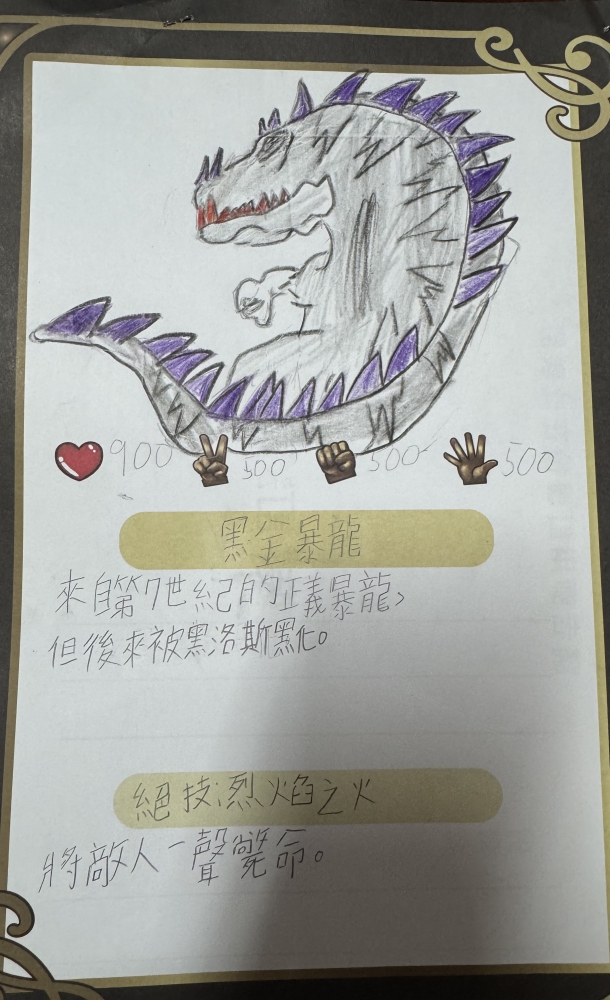 900 500 500 500
黑金暴龍
來自第7世紀的正義暴龍,
但後來被黑洛斯黑化。
絕技:烈焰之火
將敵人一聲斃命。